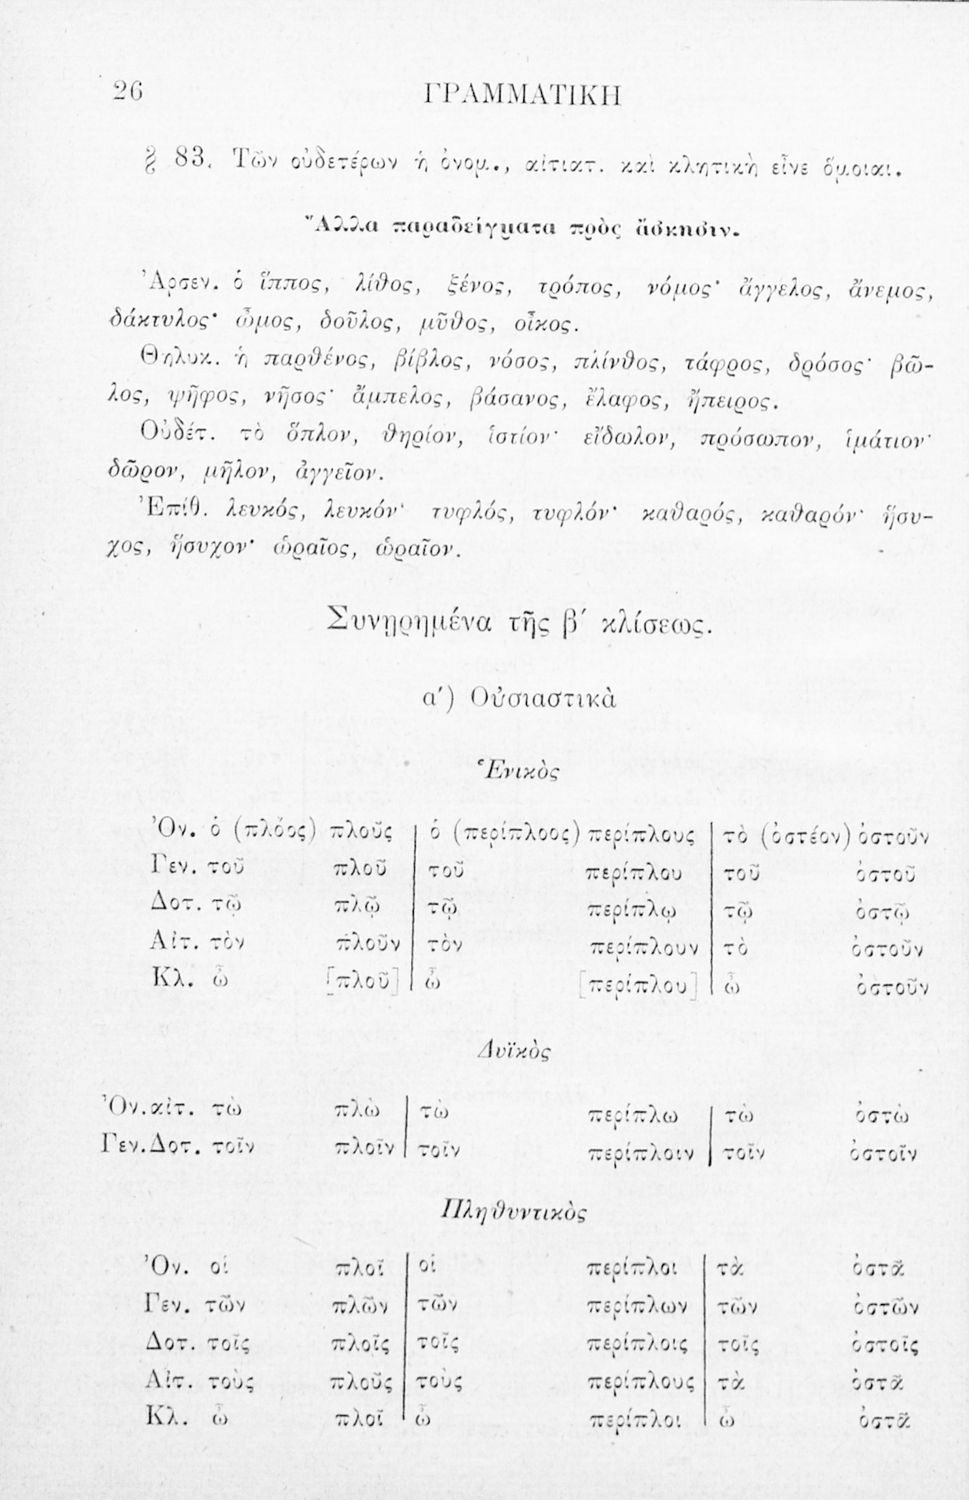 26 ΓΡΑΜΜΑΤΙΚΗ
§ 83. Τῶν οὐδετέρων ἡ ὀνομ., αἰτιατ. καὶ κλητικὴ εἶνε ὅμοιαι.
Ἄλλα παραδείγματα πρὸς ἄσκησιν.
Ἀρσεν. ὁ ἵππος, λίθος, ξένος, τρόπος, νόμος· ἄγγελος, ἄνεμος,
δάκτυλος· ὦμος, δοῦλος, μῦθος, οἶκος.
Θηλυκ. ἡ παρθένος, βίβλος, νόσος, πλίνθος, τάφρος, δρόσος· βῶ-
λος, ψῆφος, νῆσος· ἄμπελος, βάσανος, ἔλαφος, ἤπειρος.
Οὐδέτ. τὸ ὅπλον, θηρίον, ἱστίον· εἴδωλον, πρόσωπον, ἱμάτιον·
δῶρον, μῆλον, ἀγγεῖον.
Ἐπίθ. λευκός, λευκόν· τυφλός, τυφλόν· καθαρός, καθαρόν· ἥσυ-
χος, ἥσυχον· ὡραῖος, ὡραῖον.
Συνῃρημένα τῆς β΄ κλίσεως.
α΄) Οὐσιαστικὰ
Ἑνικὸς
Ὀν. ὁ (πλόος) πλοῦς ὁ (περίπλοος) περίπλους τὸ (ὀστέον) ὀστοῦν
Γεν. τοῦ πλοῦ τοῦ περίπλου τοῦ ὀστοῦ
Δοτ. τῷ πλῷ τῷ περίπλῳ τῷ ὀστῷ
Αἰτ. τὸν πλοῦν τὸν περίπλουν τὸ ὀστοῦν
Κλ. ὦ [πλοῦ] ὦ [περίπλου] ὦ ὀστοῦν
Δυϊκὸς
Ὀν.αἰτ. τὼ πλὼ τὼ περίπλω τὼ ὀστὼ
Γεν.Δοτ. τοῖν πλοῖν τοῖν περίπλοιν τοῖν ὀστοῖν
Πληθυντικὸς
Ὀν. οἱ πλοῖ οἱ περίπλοι τὰ ὀστᾶ
Γεν. τῶν πλῶν τῶν περίπλων τῶν ὀστῶν
Δοτ. τοῖς πλοῖς τοῖς περίπλοις τοῖς ὀστοῖς
Αἰτ. τοὺς πλοῦς τοὺς περίπλους τὰ ὀστᾶ
Κλ. ὦ πλοῖ ὦ περίπλοι ὦ ὀστᾶ